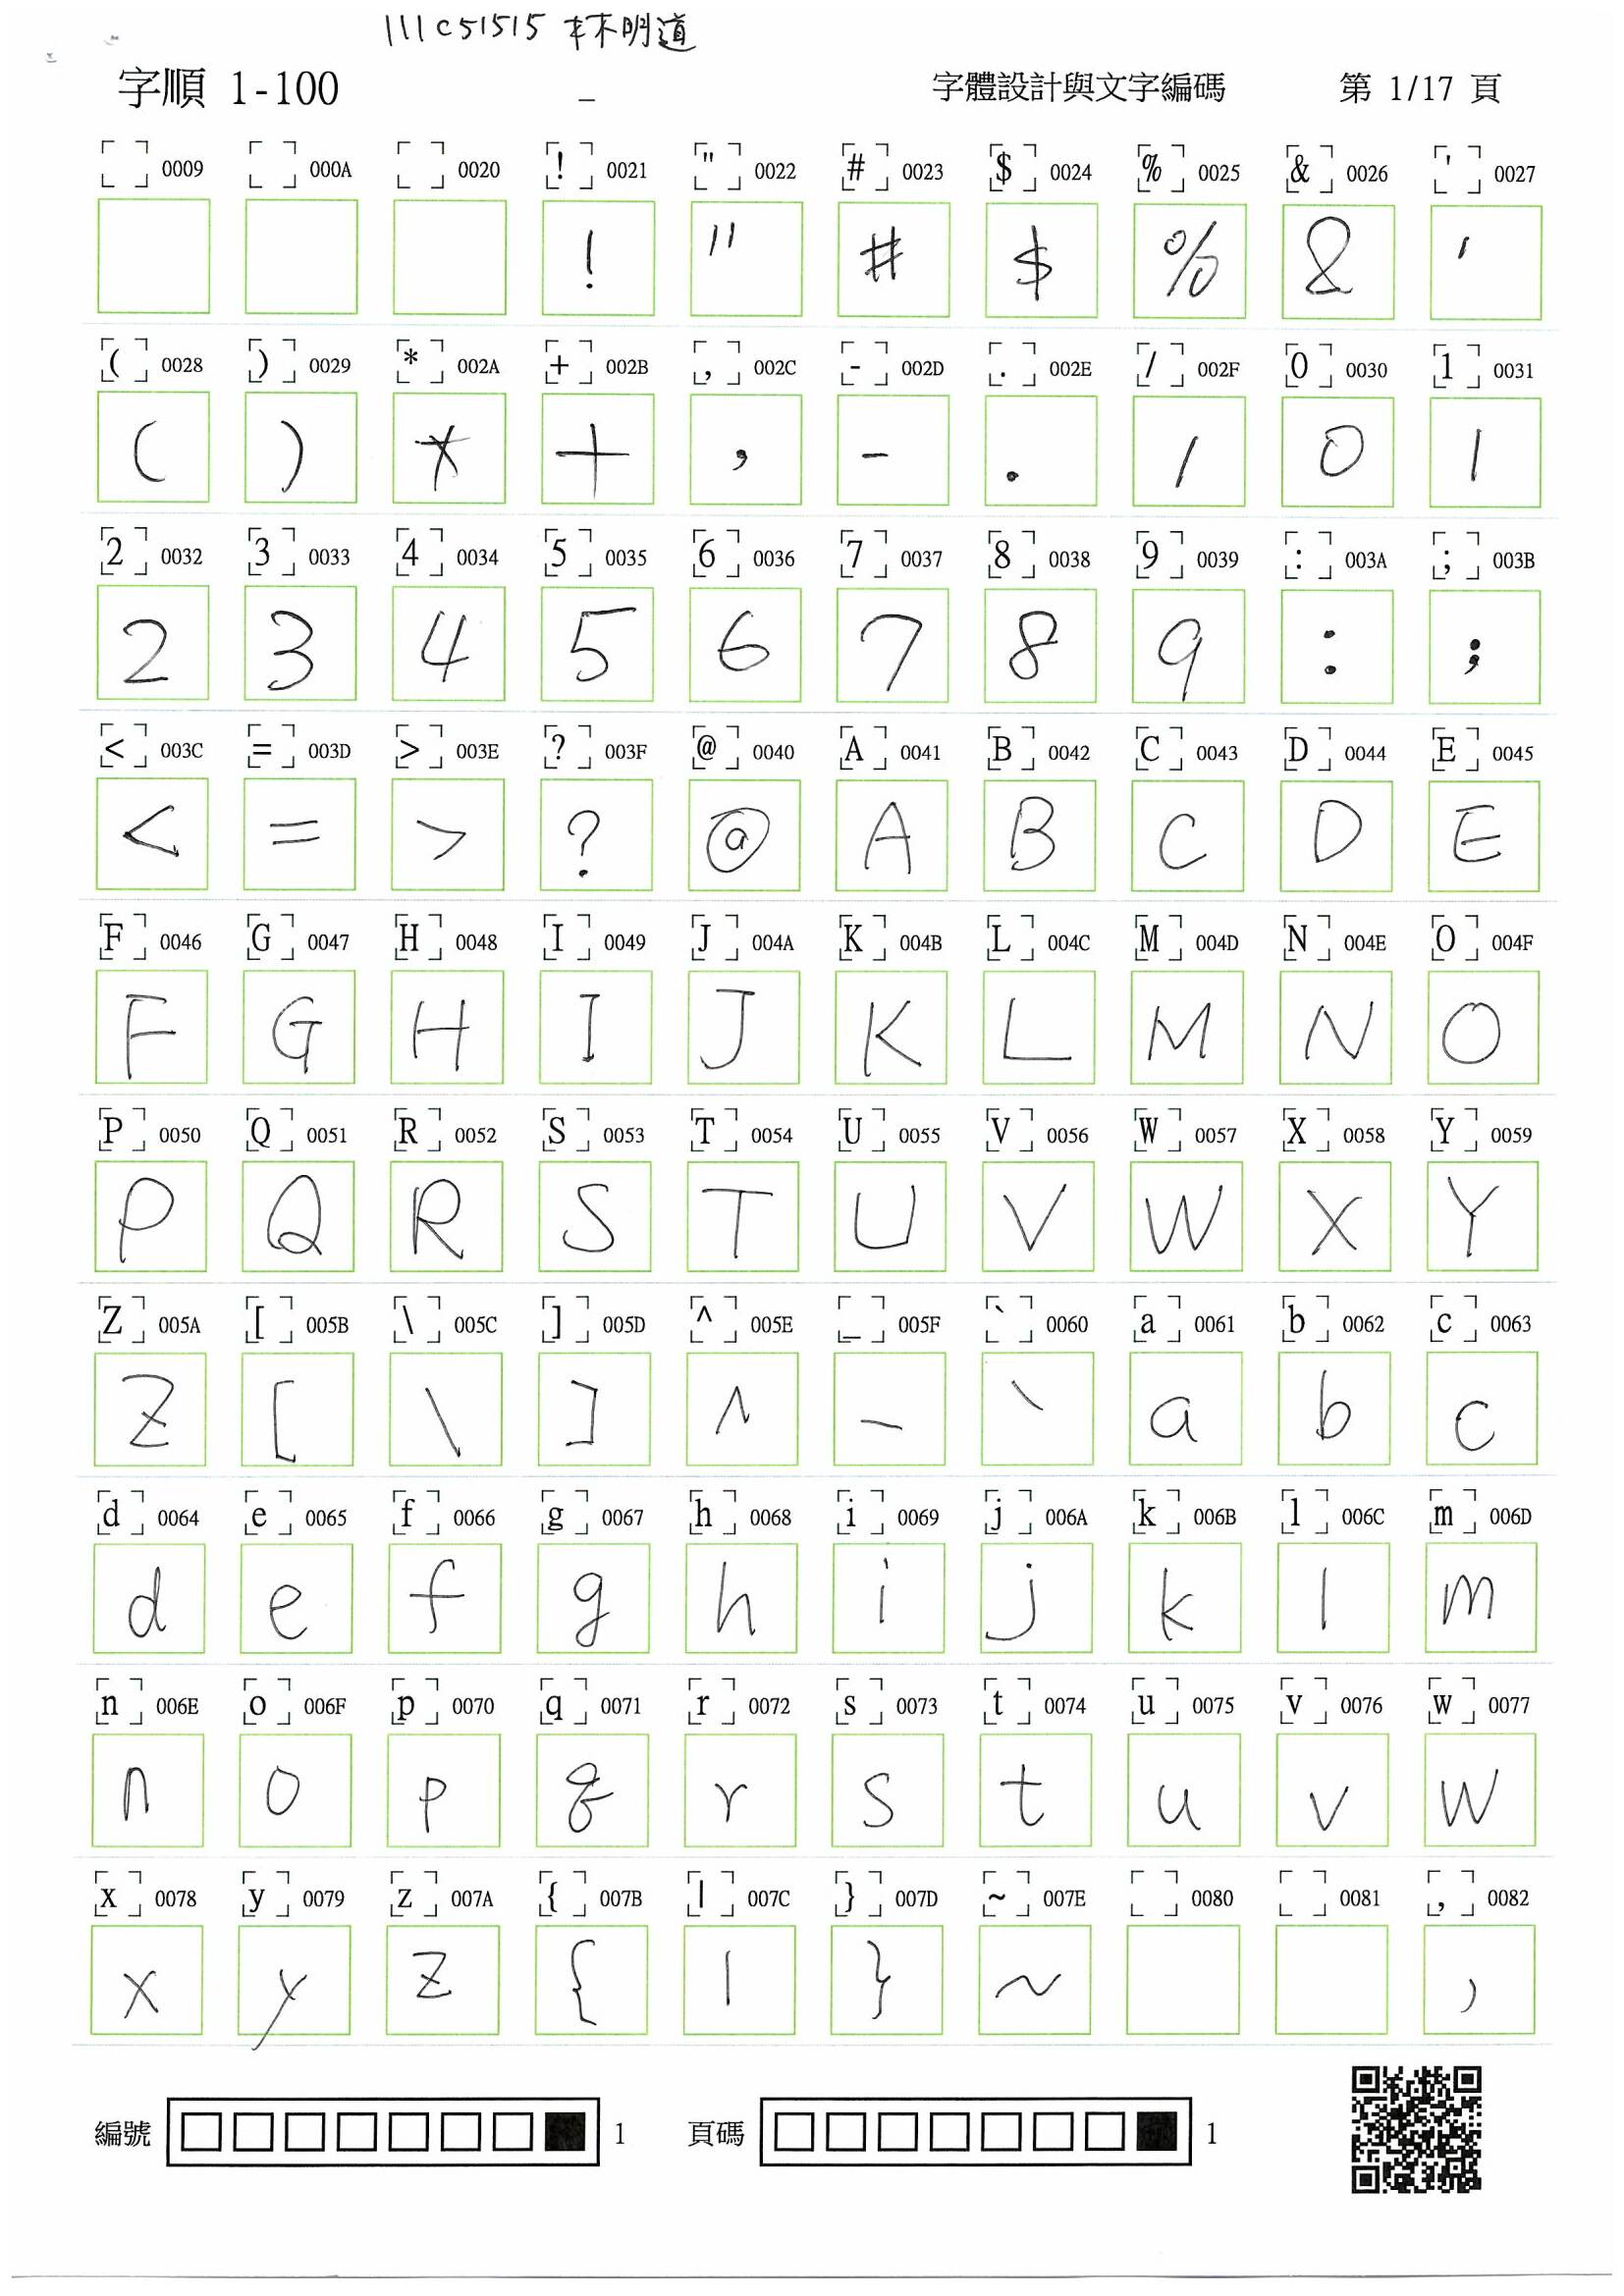 111C51515 林明道
字順 1-100 _ 字體設計與文字編碼 第 1/17 頁
0009 000A 0020 ! 0021 " 0022 # 0023 $ 0024 % 0025 & 0026 ' 0027
! " # $ % & '
( 0028 ) 0029 * 002A + 002B , 002C - 002D . 002E / 002F 0 0030 1 0031
( ) * + , - . / 0 1
2 0032 3 0033 4 0034 5 0035 6 0036 7 0037 8 0038 9 0039 : 003A ; 003B
2 3 4 5 6 7 8 9 : ;
< 003C = 003D > 003E ? 003F @ 0040 A 0041 B 0042 C 0043 D 0044 E 0045
< = > ? @ A B C D E
F 0046 G 0047 H 0048 I 0049 J 004A K 004B L 004C M 004D N 004E O 004F
F G H I J K L M N O
P 0050 Q 0051 R 0052 S 0053 T 0054 U 0055 V 0056 W 0057 X 0058 Y 0059
P Q R S T U V W X Y
Z 005A [ 005B \ 005C ] 005D ^ 005E _ 005F ` 0060 a 0061 b 0062 c 0063
Z [ \ ] ^ _ ` a b c
d 0064 e 0065 f 0066 g 0067 h 0068 i 0069 j 006A k 006B l 006C m 006D
d e f g h i j k l m
n 006E o 006F p 0070 q 0071 r 0072 s 0073 t 0074 u 0075 v 0076 w 0077
n o p q r s t u v w
x 0078 y 0079 z 007A { 007B | 007C } 007D ~ 007E 0080 0081 , 0082
x y z { | } ~ ,
編號 1 頁碼 1